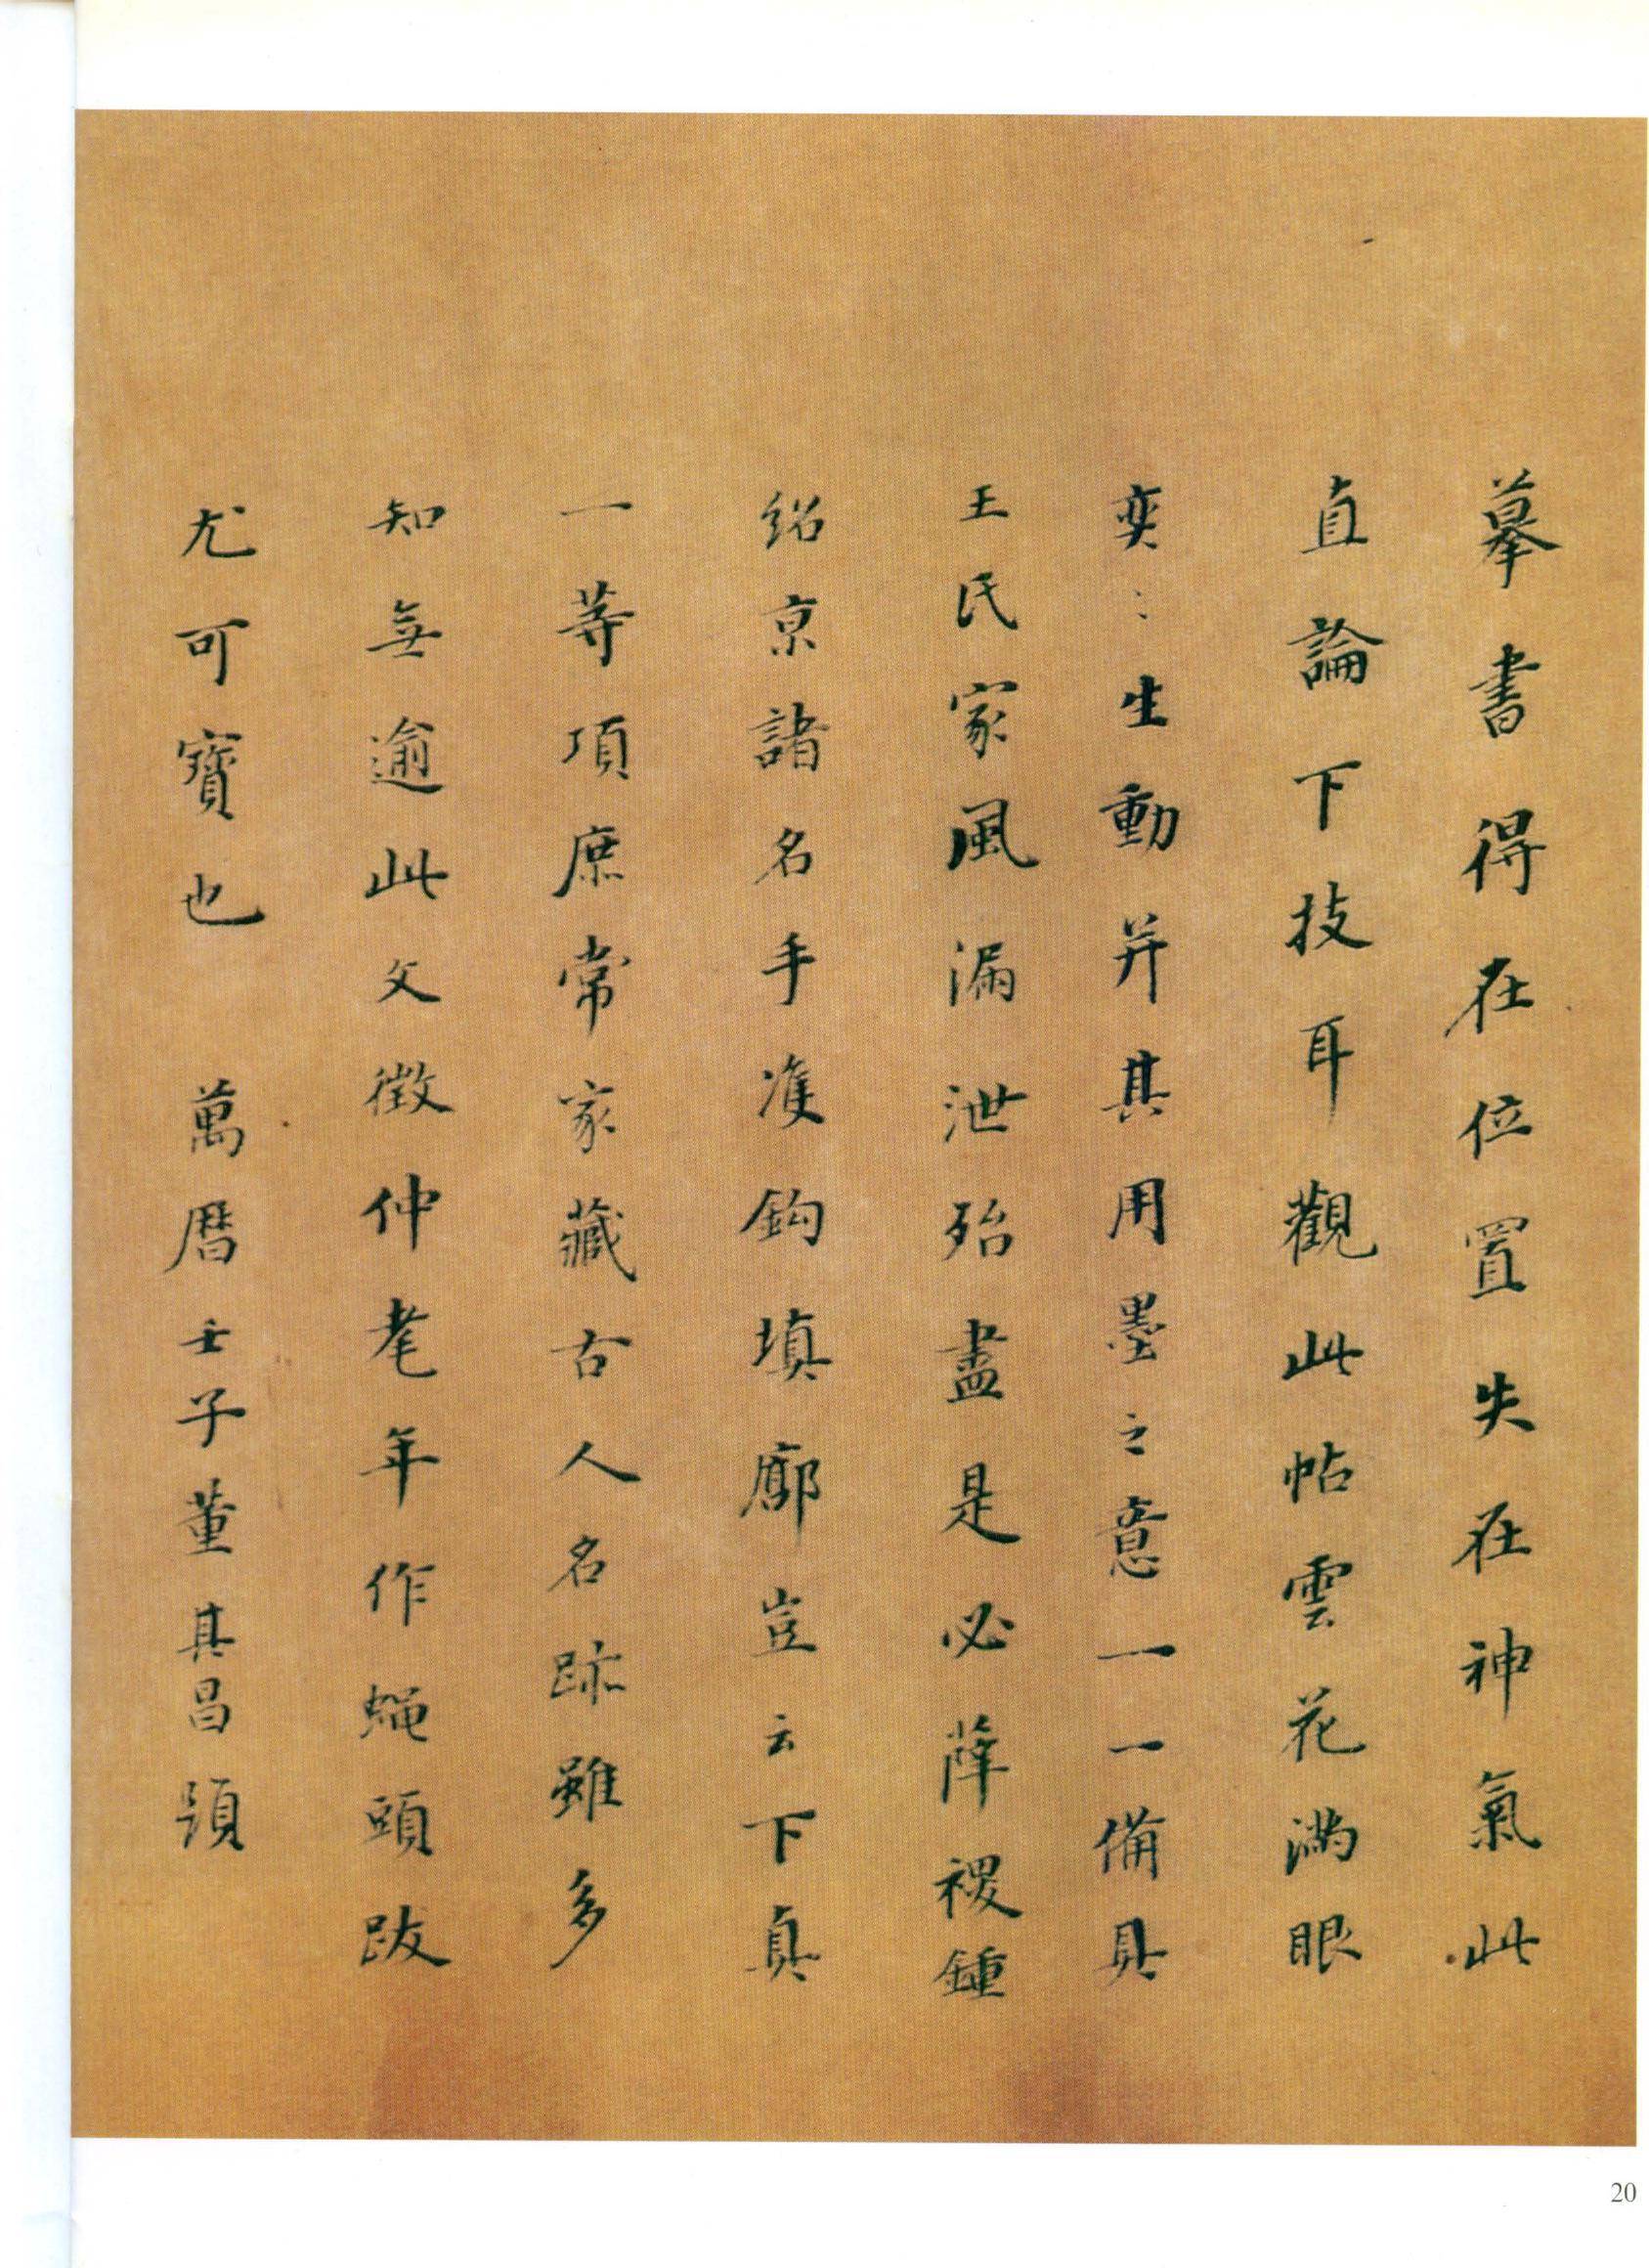 摹書得在位置失在神氣此
直論下技耳觀此帖雲花滿眼
奕〻生動并其用墨之意一一備具
王氏家風漏泄殆盡是必薛稷鍾
紹京諸名手雙鈎填廓豈云下真
一等項庶常家藏古人名跡雖多
知無逾此文徵仲老年作蠅頭跋
尤可寶也 萬曆壬子董其昌題
20